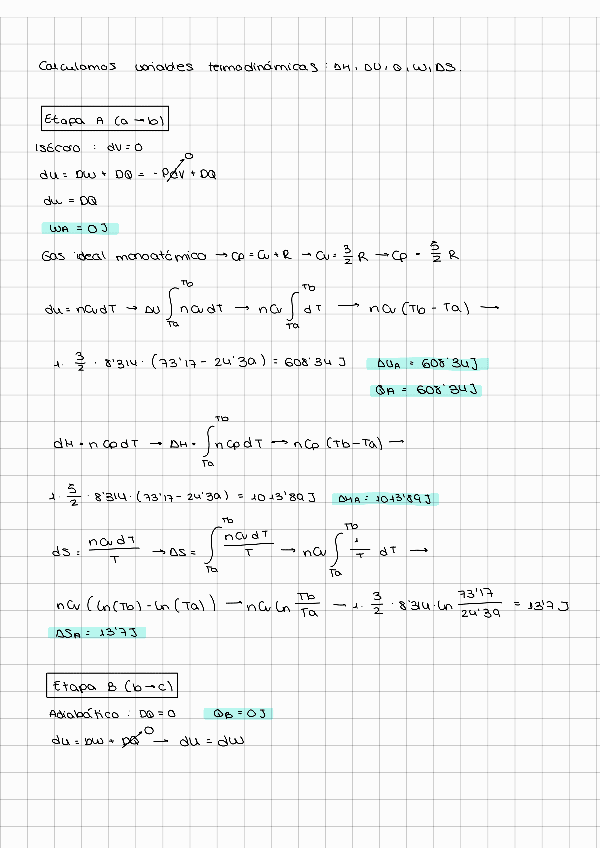 Calculamos variables termodinámicas: ΔH, DU, Q, W, ΔS.
Etapa A (a→b)
Isócoro : dV = 0
du = DW + DQ = - PdV + DQ
0
du = DQ
WA = 0 J
Gas ideal monoatómico → Cp = Cv + R → Cv = 3/2 R → Cp = 5/2 R
du = nCv dT → ΔU ∫_Ta^Tb nCv dT → nCv ∫_Ta^Tb dT → nCv (Tb - Ta) →
1 · 3/2 · 8'314 · (73'17 - 24'39) = 608'34 J ΔUA = 608'34 J
QA = 608'34 J
dH = nCp dT → ΔH = ∫_Ta^Tb nCp dT → nCp (Tb - Ta) →
1 · 5/2 · 8'314 · (73'17 - 24'39) = 1013'89 J ΔHA = 1013'89 J
dS = nCv dT / T → ΔS = ∫_Ta^Tb nCv dT / T → nCv ∫_Ta^Tb 1/T dT →
nCv (ln(Tb) - ln(Ta)) → nCv ln Tb/Ta → 1 · 3/2 · 8'314 · ln 73'17/24'39 = 13'7 J
ΔSA = 13'7 J
Etapa B (b→c)
Adiabático : DQ = 0 QB = 0 J
du = DW + DQ → du = dW
0